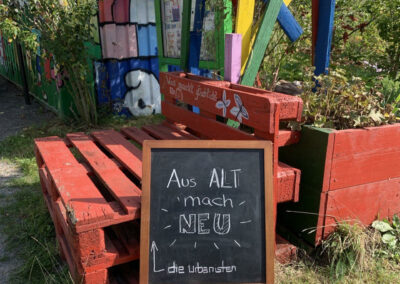 Aus ALT
mach
NEU
die urbanisten